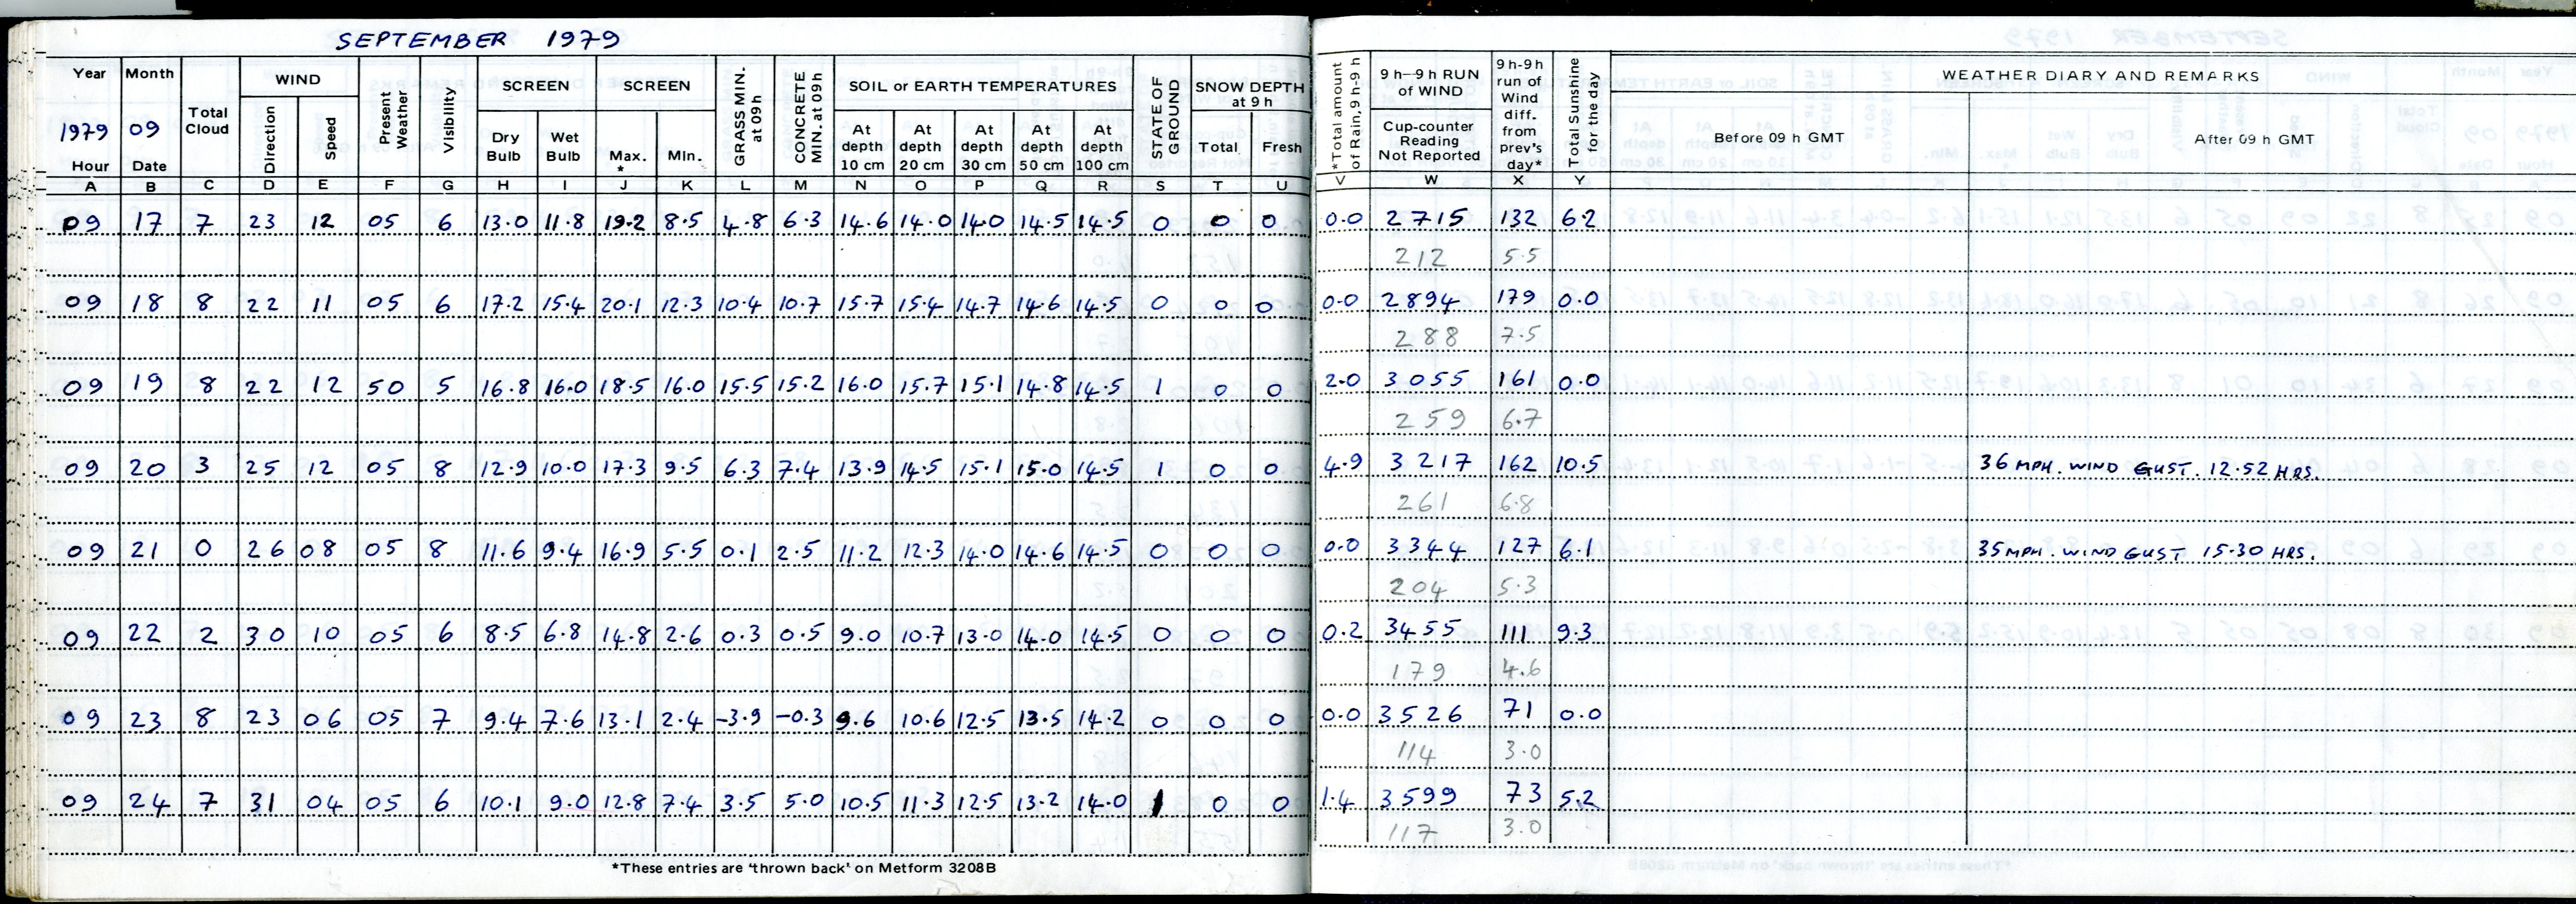 SEPTEMBER 1979
Year Month Total Cloud WIND Direction Speed Present Weather Visibility SCREEN Dry Bulb Wet Bulb SCREEN Max. * Min. GRASS MIN. at 09 h CONCRETE MIN. at 09 h SOIL or EARTH TEMPERATURES At depth 10 cm At depth 20 cm At depth 30 cm At depth 50 cm At depth 100 cm STATE OF GROUND SNOW DEPTH at 9 h Total Fresh *Total amount of Rain, 9 h-9 h 9 h–9 h RUN of WIND Cup-counter Reading Not Reported 9 h-9 h run of Wind diff. from prev's day* Total Sunshine for the day WEATHER DIARY AND REMARKS Before 09 h GMT After 09 h GMT
1979 09
Hour Date
A B C D E F G H I J K L M N O P Q R S T U V W X Y
09 17 7 23 12 05 6 13.0 11.8 19.2 8.5 4.8 6.3 14.6 14.0 14.0 14.5 14.5 0 0 0 0.0 2715 132 6.2
212 5.5
09 18 8 22 11 05 6 17.2 15.4 20.1 12.3 10.4 10.7 15.7 15.4 14.7 14.6 14.5 0 0 0 0.0 2894 179 0.0
288 7.5
09 19 8 22 12 50 5 16.8 16.0 18.5 16.0 15.5 15.2 16.0 15.7 15.1 14.8 14.5 1 0 0 2.0 3055 161 0.0
259 6.7
09 20 3 25 12 05 8 12.9 10.0 17.3 9.5 6.3 7.4 13.9 14.5 15.1 15.0 14.5 1 0 0 4.9 3217 162 10.5 36 MPH. WIND GUST. 12.52 HRS.
261 6.8
09 21 0 26 08 05 8 11.6 9.4 16.9 5.5 0.1 2.5 11.2 12.3 14.0 14.6 14.5 0 0 0 0.0 3344 127 6.1 35 MPH. WIND GUST 15.30 HRS.
204 5.3
09 22 2 30 10 05 6 8.5 6.8 14.8 2.6 0.3 0.5 9.0 10.7 13.0 14.0 14.5 0 0 0 0.2 3455 111 9.3
179 4.6
09 23 8 23 06 05 7 9.4 7.6 13.1 2.4 -3.9 -0.3 9.6 10.6 12.5 13.5 14.2 0 0 0 0.0 3526 71 0.0
114 3.0
09 24 7 31 04 05 6 10.1 9.0 12.8 7.4 3.5 5.0 10.5 11.3 12.5 13.2 14.0 1 0 0 1.4 3599 73 5.2
117 3.0
*These entries are 'thrown back' on Metform 3208B